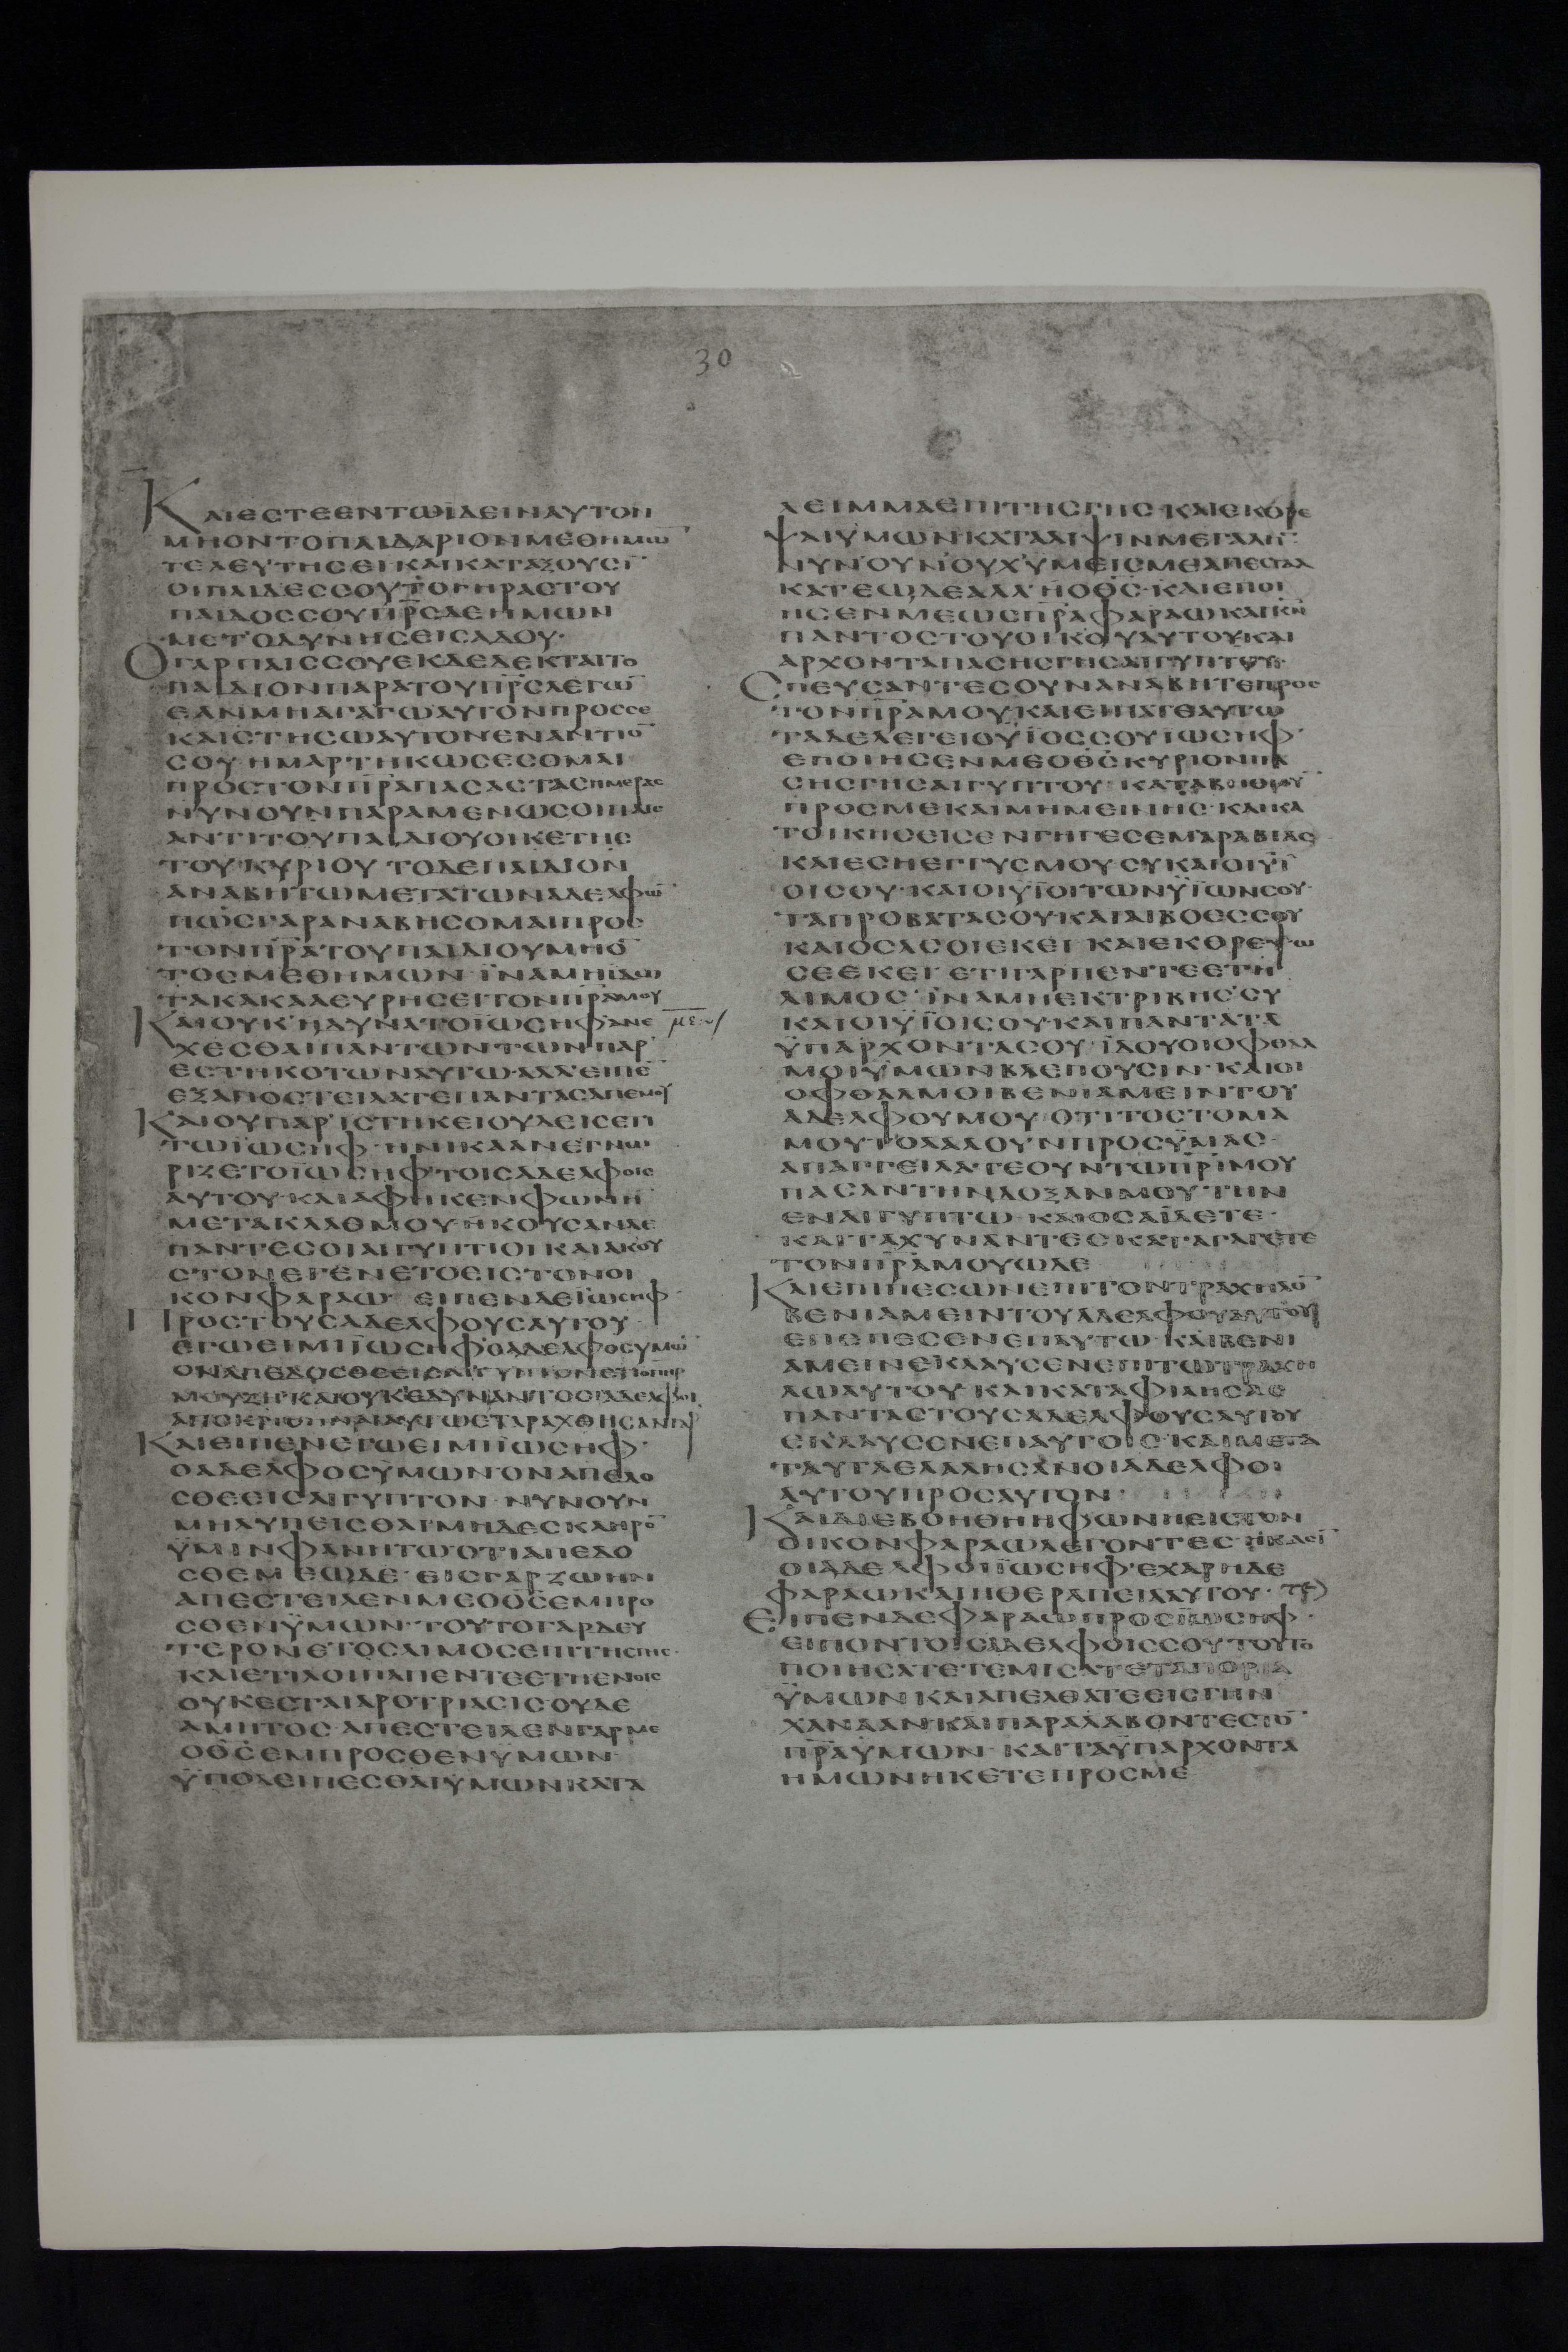 30
ΚΑΙΕΣΤΕΕΝΤΩΪΔΕΙΝΑΥΤΟΝ
ΜΗΟΝΤΟΠΑΙΔΑΡΙΟΝΜΕΘΗΜΩ̅
ΤΕΛΕΥΤΗΣΕΙΚΑΙΚΑΤΑΞΟΥΣΙ̅
ΟΙΠΑΙΔΕΣΣΟΥΤΟΓΗΡΑΣΤΟΥ
ΠΑΙΔΟΣΣΟΥΠ̅Ρ̅Σ̅ΔΕΗΜΩΝ
ΜΕΤΟΔΥΝΗΣΕΙΣΑΔΟΥ·
ΟΓΑΡΠΑΙΣΣΟΥΕΚΔΕΔΕΚΤΑΙΤΟ
ΠΑΙΔΙΟΝΠΑΡΑΤΟΥΠ̅Ρ̅Σ̅ΛΕΓΩ̅
ΕΑΝΜΗΑΓΑΓΩΑΥΤΟΝΠΡΟΣΣΕ
ΚΑΙΣΤΗΣΩΑΥΤΟΝΕΝΑΝΤΙΟ̅
ΣΟΥ·ΗΜΑΡΤΗΚΩΣΕΣΟΜΑΙ
ΠΡΟΣΤΟΝΠ̅Ρ̅Α̅ΠΑΣΑΣΤΑΣΗΜΕΡΑΣ
ΝΥΝΟΥΝΠΑΡΑΜΕΝΩΣΟΙΠΑΙΣ
ΑΝΤΙΤΟΥΠΑΙΔΙΟΥΟΙΚΕΤΗΣ
ΤΟΥΚΥΡΙΟΥ ΤΟΔΕΠΑΙΔΙΟΝ
ΑΝΑΒΗΤΩΜΕΤΑΤΩΝΑΔΕΛΦΩ̅
ΠΩΣΓΑΡΑΝΑΒΗΣΟΜΑΙΠΡΟΣ
ΤΟΝΠ̅Ρ̅Α̅ΤΟΥΠΑΙΔΙΟΥΜΗΟ̅
ΤΟΣΜΕΘΗΜΩΝ·ΪΝΑΜΗΪΔΩ
ΤΑΚΑΚΑΑΕΥΡΗΣΕΙΤΟΝΠ̅Ρ̅Α̅ΜΟΥ
ΚΑΙΟΥΚΗΔΥΝΑΤΟΪΩΣΗΦΑΝΕ
ΧΕΣΘΑΙΠΑΝΤΩΝΤΩΝΠΑΡ
ΕΣΤΗΚΟΤΩΝΑΥΤΩ·ΑΛΛΕΙΠΕ̅
ΕΞΑΠΟΣΤΕΙΛΑΤΕΠΑΝΤΑΣΑΠΕΜΟΥ
ΚΑΙΟΥΠΑΡΙΣΤΗΚΕΙΟΥΔΕΙΣΕΠΙ
ΤΩΪΩΣΗΦ·ΗΝΙΚΑΑΝΕΓΝΩ
ΡΙΖΕΤΟΪΩΣΗΦΤΟΙΣΑΔΕΛΦΟΙΣ
ΑΥΤΟΥ·ΚΑΙΑΦΗΚΕΝΦΩΝΗ
ΜΕΤΑΚΛΑΘΜΟΥ·ΗΚΟΥΣΑΝΔΕ
ΠΑΝΤΕΣΟΙΑΙΓΥΠΤΙΟΙΚΑΙΑΚΟΥ
ΣΤΟΝΕΓΕΝΕΤΟΕΙΣΤΟΝΟΙ
ΚΟΝΦΑΡΑΩ· ΕΙΠΕΝΔΕΪΩΣΗΦ·
ΠΡΟΣΤΟΥΣΑΔΕΛΦΟΥΣΑΥΤΟΥ
ΕΓΩΕΙΜΙΪΩΣΗΦΟΑΔΕΛΦΟΣΥΜΩ̅
ΟΝΑΠΕΔΟΣΘΕΕΙΣΑΙΓΥΠΤΟΝΕΤΙΟΠ̅Η̅Ρ̅
ΜΟΥΖΗ·ΚΑΙΟΥΚΕΔΥΝΑΝΤΟΟΙΑΔΕΛΦΟΙ
ΑΠΟΚΡΙΘΗΝΑΙΑΥΤΩΕΤΑΡΑΧΘΗΣΑΝΓΑΡ
ΚΑΙΕΙΠΕΝΕΓΩΕΙΜΙΪΩΣΗΦ·
ΟΑΔΕΛΦΟΣΥΜΩΝ·ΟΝΑΠΕΔΟ
ΣΘΕΕΙΣΑΙΓΥΠΤΟΝ·ΝΥΝΟΥΝ
ΜΗΛΥΠΕΙΣΘΑΙΜΗΔΕΣΚΛΗΡΟ̅
ΫΜΙΝΦΑΝΗΤΩΟΤΙΑΠΕΔΟ
ΣΘΕΜΕΩΔΕ·ΕΙΣΓΑΡΖΩΗΝ
ΑΠΕΣΤΕΙΛΕΝΜΕΟΘ̅Σ̅ΕΜΠΡΟ
ΣΘΕΝΫΜΩΝ·ΤΟΥΤΟΓΑΡΔΕΥ
ΤΕΡΟΝΕΤΟΣΛΙΜΟΣΕΠΙΤΗΣΓΗΣ·
ΚΑΙΕΤΙΛΟΙΠΑΠΕΝΤΕΕΤΗΕΝΟΙΣ
ΟΥΚΕΣΤΑΙΑΡΟΤΡΙΑΣΙΣΟΥΔΕ
ΑΜΗΤΟΣ·ΑΠΕΣΤΕΙΛΕΝΓΑΡΜΕ
ΟΘ̅Σ̅ΕΜΠΡΟΣΘΕΝΫΜΩΝ
ΫΠΟΛΕΙΠΕΣΘΑΙΫΜΩΝΚΑΤΑ
ΛΕΙΜΜΑΕΠΙΤΗΣΓΗΣ·ΚΑΙΕΚΘΡΕ
ΨΑΙΫΜΩΝΚΑΤΑΛΙΨΙΝΜΕΓΑΛΗ̅
ΝΥΝΟΥΝΟΥΧΫΜΕΙΣΜΕΑΠΕΣΤΑΛ
ΚΑΤΕΩΔΕΑΛΛΗΟΘ̅Σ̅·ΚΑΙΕΠΟΙ
ΗΣΕΝΜΕΩΣΠ̅Ρ̅Α̅ΦΑΡΑΩΚΑΙΚΝ̅
ΠΑΝΤΟΣΤΟΥΟΙΚΟΥΑΥΤΟΥΚΑΙ
ΑΡΧΟΝΤΑΠΑΣΗΣΓΗΣΑΙΓΥΠΤΟΥ·
ΣΠΕΥΣΑΝΤΕΣΟΥΝΑΝΑΒΗΤΕΠΡΟΣ
ΤΟΝΠ̅Ρ̅Α̅ΜΟΥ·ΚΑΙΕΙΠΑΤΕΑΥΤΩ
ΤΑΔΕΛΕΓΕΙΟΫΙΟΣΣΟΥΪΩΣΗΦ·
ΕΠΟΙΗΣΕΝΜΕΟΘ̅Σ̅ΚΥΡΙΟΝΠΑ
ΣΗΣΓΗΣΑΙΓΥΠΤΟΥ·ΚΑΤΑΒΗΘΙΟΥ̅
ΠΡΟΣΜΕΚΑΙΜΗΜΕΙΝΗΣ·ΚΑΙΚΑ
ΤΟΙΚΗΣΕΙΣΕΝΓΗΓΕΣΕΜΑΡΑΒΙΑΣ·
ΚΑΙΕΣΗΕΓΓΥΣΜΟΥ·ΣΥΚΑΙΟΙΫΪ
ΟΙΣΟΥ·ΚΑΙΟΙΫΪΟΙΤΩΝΫΪΩΝΣΟΥ·
ΤΑΠΡΟΒΑΤΑΣΟΥ·ΚΑΙΑΙΒΟΕΣΣΟΥ
ΚΑΙΟΣΑΣΟΙΕΚΕΙ·ΚΑΙΕΚΘΡΕΨΩ
ΣΕΕΚΕΙ·ΕΤΙΓΑΡΠΕΝΤΕΕΤΗ
ΛΙΜΟΣ·ΪΝΑΜΗΕΚΤΡΙΒΗΣΣΥ
ΚΑΙΟΙΫΪΟΙΣΟΥ·ΚΑΙΠΑΝΤΑΤΑ
ΫΠΑΡΧΟΝΤΑΣΟΥ·ΪΔΟΥΟΙΟΦΘΑΛ
ΜΟΙΫΜΩΝΒΛΕΠΟΥΣΙΝ·ΚΑΙΟΙ
ΟΦΘΑΛΜΟΙΒΕΝΙΑΜΕΙΝΤΟΥ
ΑΔΕΛΦΟΥΜΟΥ·ΟΤΙΤΟΣΤΟΜΑ
ΜΟΥΤΟΛΑΛΟΥΝΠΡΟΣΫΜΑΣ·
ΑΠΑΓΓΕΙΛΑΤΕΟΥΝΤΩΠ̅Ρ̅Ι̅ΜΟΥ
ΠΑΣΑΝΤΗΝΔΟΞΑΝΜΟΥ·ΤΗΝ
ΕΝΑΙΓΥΠΤΩ·ΚΑΙΟΣΑΪΔΕΤΕ·
ΚΑΙΤΑΧΥΝΑΝΤΕΣΚΑΤΑΓΑΓΕΤΕ
ΤΟΝΠ̅Ρ̅Α̅ΜΟΥΩΔΕ
ΚΑΙΕΠΙΠΕΣΩΝΕΠΙΤΟΝΤΡΑΧΗΛΟ̅
ΒΕΝΙΑΜΕΙΝΤΟΥΑΔΕΛΦΟΥΑΥΤΟΥ
ΕΠΕΠΕΣΕΝΕΠΑΥΤΩ·ΚΑΙΒΕΝΙ
ΑΜΕΙΝΕΚΛΑΥΣΕΝΕΠΙΤΩΤΡΑΧΗ
ΛΩΑΥΤΟΥ·ΚΑΙΚΑΤΑΦΙΛΗΣΑΣ
ΠΑΝΤΑΣΤΟΥΣΑΔΕΛΦΟΥΣΑΥΤΟΥ
ΕΚΛΑΥΣΕΝΕΠΑΥΤΟΙΣ·ΚΑΙΜΕΤΑ
ΤΑΥΤΑΕΛΑΛΗΣΑΝΟΙΑΔΕΛΦΟΙ
ΑΥΤΟΥΠΡΟΣΑΥΤΟΝ·
ΚΑΙΔΙΕΒΟΗΘΗΗΦΩΝΗΕΙΣΤΟΝ
ΟΙΚΟΝΦΑΡΑΩΛΕΓΟΝΤΕΣ·ΗΚΑΣΙ̅
ΟΙΑΔΕΛΦΟΙΪΩΣΗΦ·ΕΧΑΡΗΔΕ
ΦΑΡΑΩΚΑΙΗΘΕΡΑΠΕΙΑΑΥΤΟΥ·
ΕΙΠΕΝΔΕΦΑΡΑΩΠΡΟΣΪΩΣΗΦ·
ΕΙΠΟΝΤΟΙΣΑΔΕΛΦΟΙΣΣΟΥΤΟΥΤΟ
ΠΟΙΗΣΑΤΕΓΕΜΙΣΑΤΕΤΑΠΟΡΙΑ
ΫΜΩΝΚΑΙΑΠΕΛΘΑΤΕΕΙΣΓΗΝ
ΧΑΝΑΑΝ·ΚΑΙΠΑΡΑΛΑΒΟΝΤΕΣΤΟ̅
Π̅Ρ̅Α̅ΫΜΩΝ·ΚΑΙΤΑΫΠΑΡΧΟΝΤΑ
ΗΜΩΝΗΚΕΤΕΠΡΟΣΜΕ